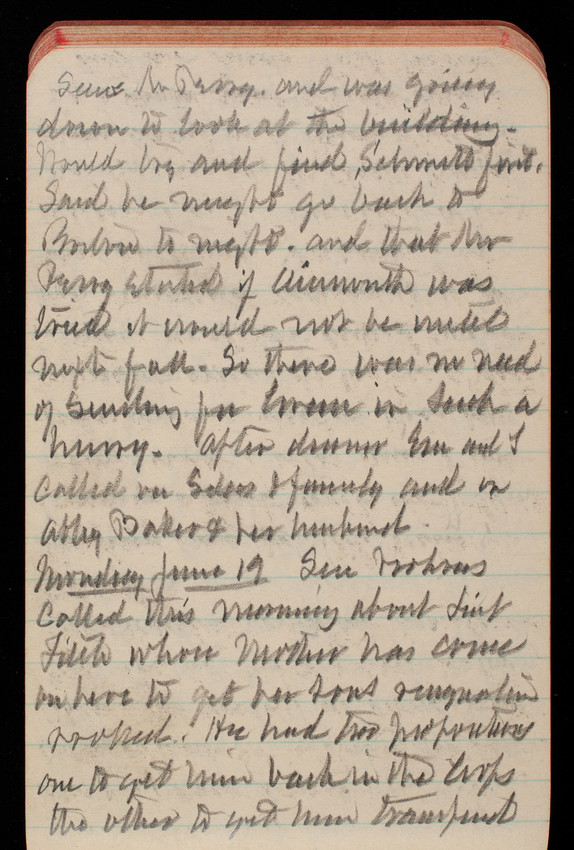 seen Mr Perry. and was going
down to look at the building.
Would try and find Schmitt first.
Said he might go back to
Boston to night. and that Mr
Perry stated if Ainsworth was
tried it would not be until
next fall. So there was no need
of sending for in such a
hurry. After dinner Em and I
called on & family and on
Abby Baker & her husband.
Monday June 19 Sen
called this morning about Lieut
whose Mother has come
on here to get her sons resignation
revoked. He had two propositions
one to get him back in the Corps
the other to get him transferred